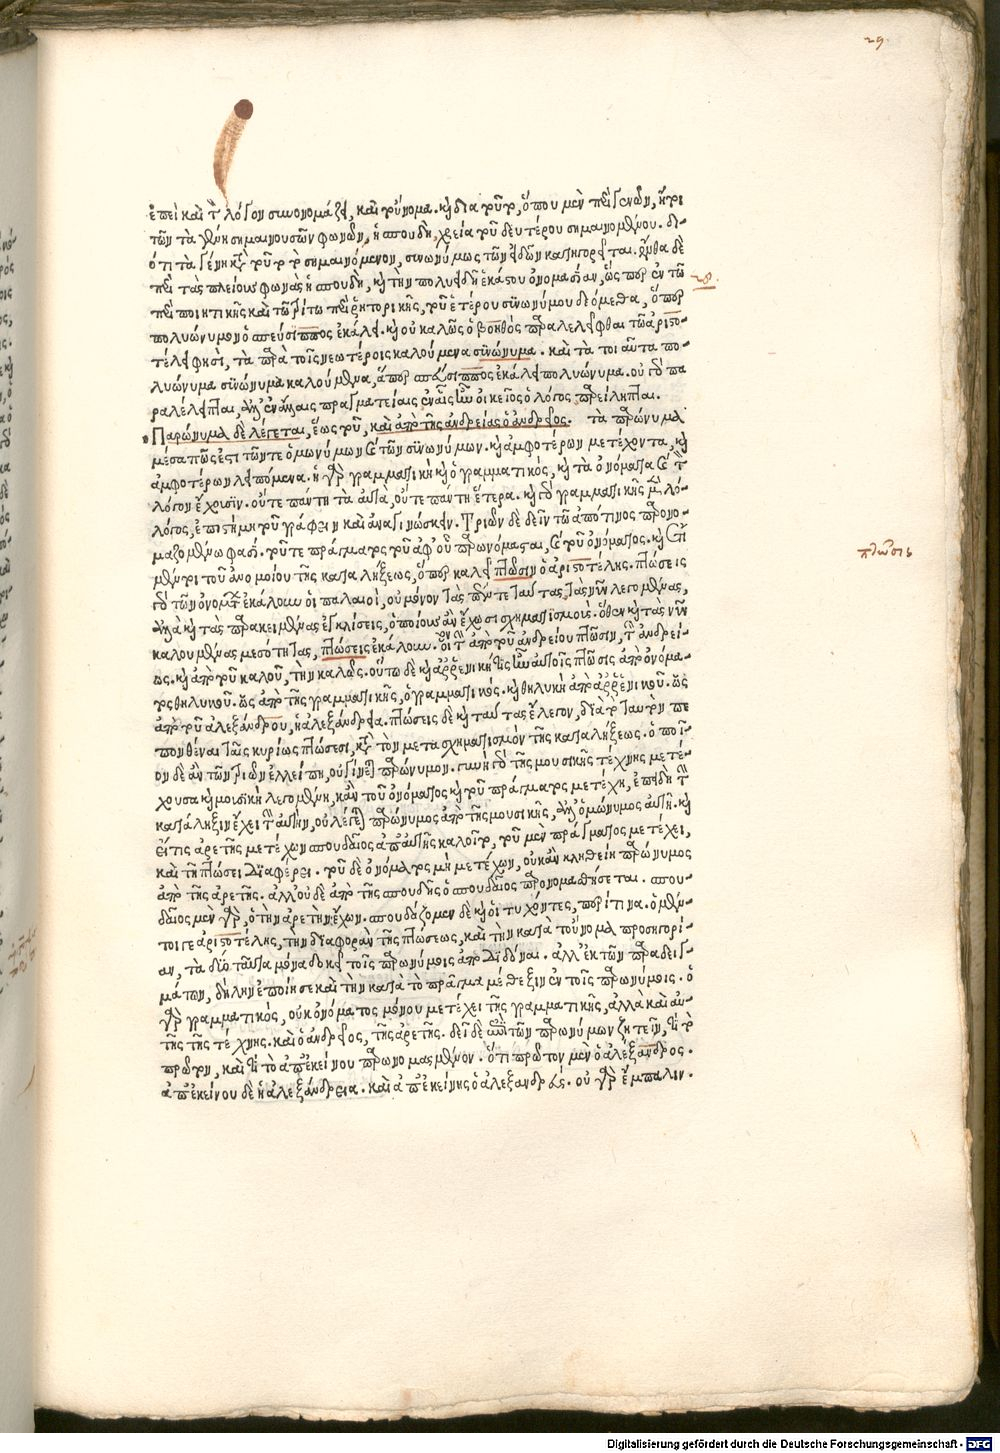 29
ἐπεὶ καὶ τὸν λόγον συνονομάζει, καὶ τοὔνομα. καὶ διὰ τοῦτο, ὅπου μὲν περὶ γενῶν, ἤτοι
τῶν τὰ γένη σημαινουσῶν φωνῶν, ἡ σπουδὴ, χρεία τοῦ δευτέρου σημαινομένου. δι-
ότι τὰ γένη κατὰ τοῦτο τὸ σημαινόμενον, συνωνύμως τῶν εἰδῶν κατηγορεῖται. ἔνθα δὲ
περὶ τὰς πλείους φωνὰς ἡ σπουδὴ, καὶ τὴν πολυειδῆ ἑκάστου ὀνομασίαν, ὥσπερ ἐν τῶ
περὶ ποιητικῆς καὶ τῶ τρίτω περὶ ῥητορικῆς, τοῦ ἑτέρου συνωνύμου δεόμεθα, ὅπερ
πολυώνυμον ὁ σπεύσιππος ἐκάλει. καὶ οὐ καλῶς ὁ βοηθὸς παραλελεῖφθαι τῶ ἀριστο-
τέλει φησὶ, τὰ παρὰ τοῖς νεωτέροις καλούμενα συνώνυμα. καὶ τὰ τοιαῦτα πο-
λυώνυμα συνώνυμα καλούμενα, ἅπερ σπεύσιππος ἐκάλει πολυώνυμα. οὐ γὰρ πα
ραλέλειπται, ἀλλ' ἐν ἄλλαις πραγματείαις ἐν αἷς ἦν οἰκεῖος ὁ λόγος παρείληπται.
Παρώνυμα δὲ λέγεται, ἕως τοῦ, καὶ ἀπὸ τῆς ἀνδρείας ὁ ἀνδρεῖος. τὰ παρώνυμα
μέσα πῶς ἐστι τῶν τε ὁμωνύμων καὶ τῶν συνωνύμων. καὶ ἀμφοτέρων μετέχοντα, καὶ
ἀμφοτέρων λειπόμενα. ἡ γὰρ γραμματικὴ καὶ ὁ γραμματικὸς, καὶ τὰ ὀνόματα καὶ τὸν
λόγον ἔχουσιν. οὔτε πάντη τὰ αὐτὰ, οὔτε πάντη ἕτερα. καὶ γὰρ γραμματικῆς μὲν λό-
λόγος, ἐπιστήμη τοῦ γράφειν καὶ ἀναγινώσκειν. Τριῶν δὲ δεῖν τῶ ἀπό τινος παρονο-
μαζομένω φασί. τοῦ τε πράγματος τοῦ ἀφ' οὗ παρωνόμασται, καὶ τοῦ ὀνόματος. καὶ ἐπὶ
μέντοι τοῦ ἀνομοίου τῆς καταλήξεως, ὅπερ καλεῖ πτῶσιν ὁ ἀριστοτέλης. πτώσεις
γὰρ τῶν ὀνομάτων ἐκάλουν οἱ παλαιοὶ, οὐ μόνον τὰς πέντε ταύτας, τὰς νῦν λεγομένας,
ἀλλὰ καὶ τὰς παρακειμένας ἐγκλίσεις, ὁποίους ἂν ἔχωσι σχηματισμούς. ὅθεν καὶ τὰς νῦν
καλουμένας μεσότητας, πτώσεις ἐκάλουν. οἷον τὴν ἀπὸ τοῦ ἀνδρείου πτῶσιν, τὴν ἀνδρεί-
ως. καὶ ἀπὸ τοῦ καλοῦ, τὴν καλῶς. οὕτω δὲ καὶ ἀρρενική τις ἦν αὐτοῖς πτῶσις ἀπὸ ὀνόμα-
τος θηλυκοῦ. ὡς ἀπὸ τῆς γραμματικῆς, ὁ γραμματικός. καὶ θηλυκὴ ἀπὸ ἀρρενικοῦ. ὡς
ἀπὸ τοῦ ἀλεξάνδρου, ἡ ἀλεξάνδρεια. πτώσεις δὲ καὶ ταύτας ἔλεγον, διὰ τὸ ταὐτὸν πε
πονθέναι ταῖς κυρίως πτώσεσι, κατὰ τὸν μετασχηματισμὸν τῆς καταλήξεως. ὁποῖ-
ον δὲ ἂν τῶν τριῶν ἐλλείπη, οὐ γίνεται παρώνυμον. γυνὴ γὰρ τῆς μουσικῆς τέχνης μετέ-
χουσα καὶ μουσικὴ λεγομένη, κἂν τοῦ ὀνόματος καὶ τοῦ πράγματος μετέχη, ἐπειδὴ τὴν
κατάληξιν ἔχει τὴν αὐτὴν, οὐ λέγεται παρώνυμος ἀπὸ τῆς μουσικῆς, ἀλλ' ὁμώνυμος αὐτῆ. καὶ
εἴ τις ἀρετῆς μετέχων σπουδαῖος ἀπ' αὐτῆς καλοῖτο, τοῦ μὲν πράγματος μετέχει,
καὶ τῆ πτώσει διαφέρει. τοῦ δὲ ὀνόματος μὴ μετέχων, οὐκ ἂν κληθείη παρώνυμος
ἀπὸ τῆς ἀρετῆς. ἀλλ' οὐδὲ ἀπὸ τῆς σπουδῆς ὁ σπουδαῖος παρονομασθήσεται. σπου-
δαῖος μὲν γὰρ, ὁ τὴν ἀρετὴν ἔχων. σπουδάζομεν δὲ καὶ οἱ τυχόντες, περί τινα. ὁ μέν-
τοι γε ἀριστοτέλης, τὴν διαφορὰν τῆς πτώσεως, καὶ τὴν κατὰ τοὔνομα προσηγορί-
αν, τὰ δύο ταῦτα μόνα δοκεῖ τοῖς παρωνύμοις ἀποδιδόναι. ἀλλ' ἐκ τῶν παραδειγ-
μάτων, δῆλην ἐποίησε καὶ τὴν κατὰ τὸ πρᾶγμα μέθεξιν ἐν τοῖς παρωνύμοις. ὁ
γὰρ γραμματικὸς, οὐκ ὀνόματος μόνου μετέχει τῆς γραμματικῆς, ἀλλὰ καὶ αὐ-
τῆς τῆς τέχνης. καὶ ὁ ἀνδρεῖος, τῆς ἀρετῆς. δεῖ δὲ ἐπὶ τῶν παρωνύμων ζητεῖν, τί τὸ
πρῶτον, καὶ τί τὸ ἀπ' ἐκείνου παρωνομασμένον. ὅτι πρῶτον μὲν ὁ ἀλέξανδρος.
ἀπ' ἐκείνου δὲ ἡ ἀλεξάνδρεια. καὶ ἀπ' ἐκείνης ὁ ἀλεξανδρεύς. οὐ γὰρ ἔμπαλιν.
πτῶσις
Digitalisierung gefördert durch die Deutsche Forschungsgemeinschaft - DFG